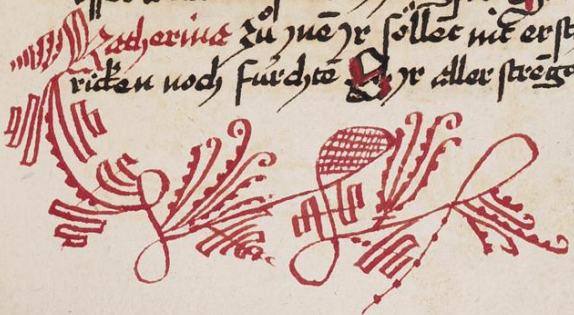 Katherina zů jnē jr söllet nit erst
ricken noch fürchtē Jr aller streng